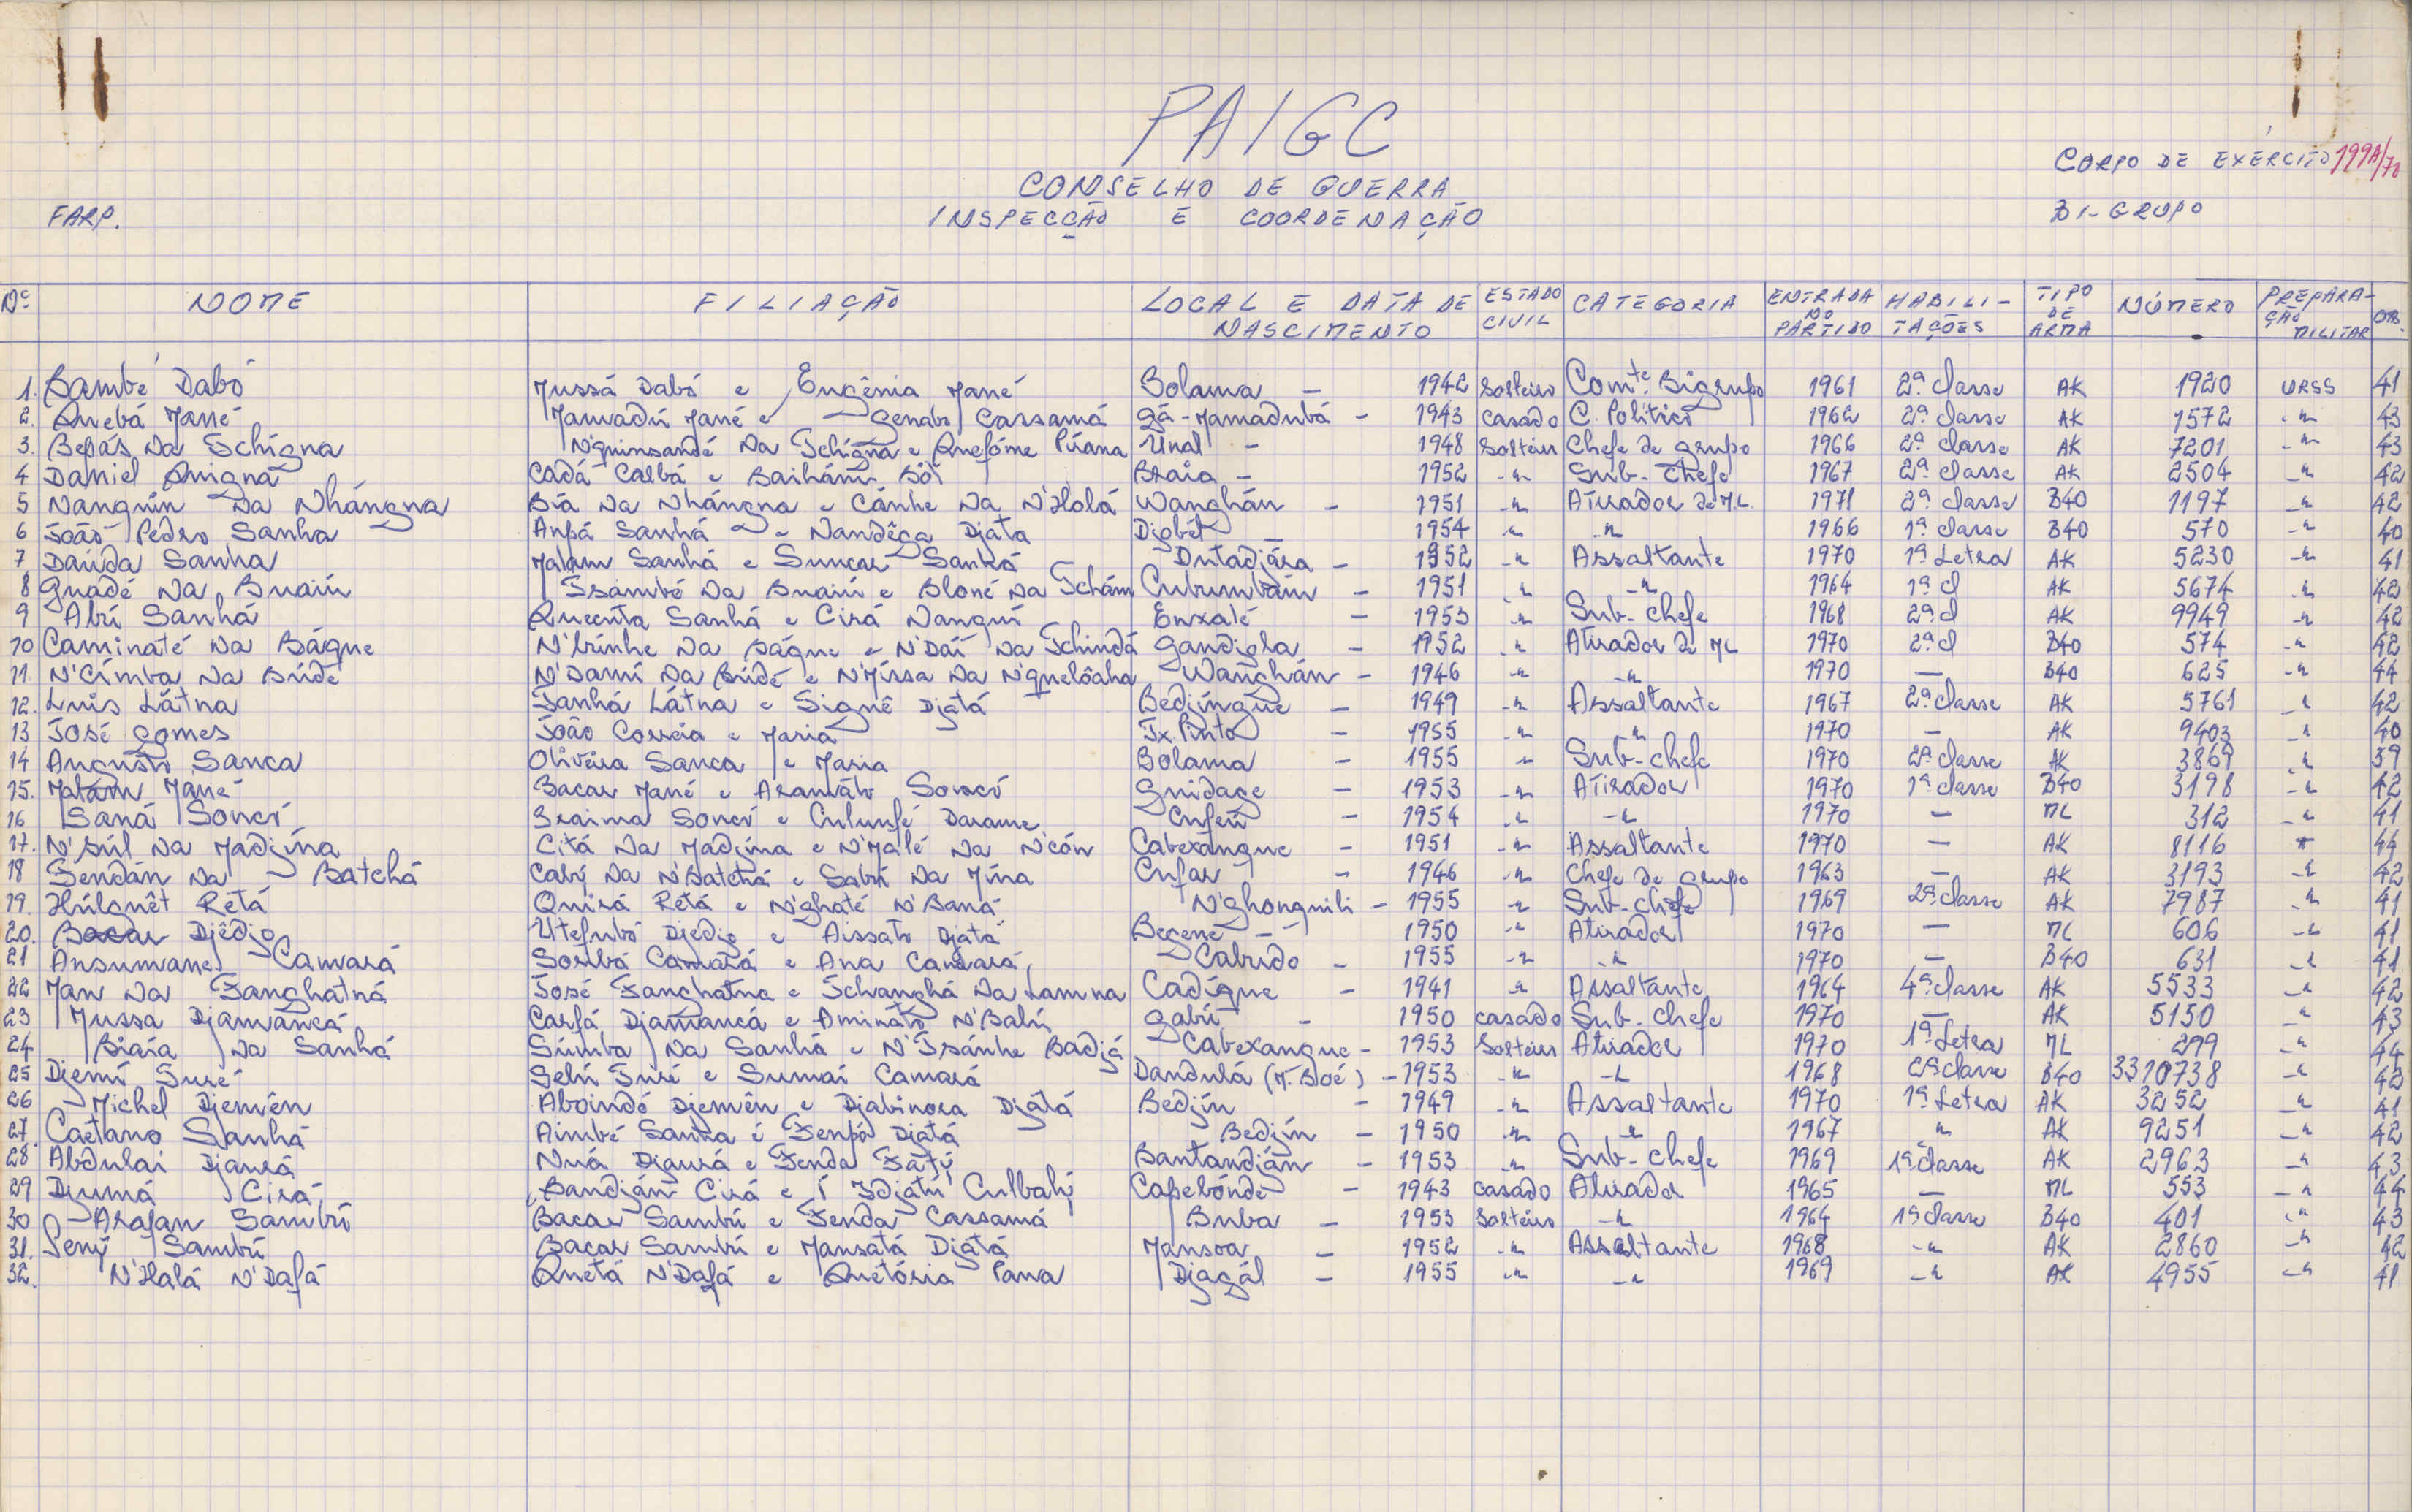 PAIGC
CORPO DE EXÉRCITO 199A/70
CONSELHO DE GUERRA
FARP. INSPECÇÃO E COORDENAÇÃO BI-GRUPO
Nº NOME FILIAÇÃO LOCAL E DATA DE NASCIMENTO ESTADO CIVIL CATEGORIA ENTRADA NO PARTIDO HABILITAÇÕES TIPO DE ARMA NÚMERO PREPARAÇÃO MILITAR OB.
1. Bambé Dabó Mussá Dabó e Eugênia Mané Bolama – 1942 Solteiro Comte. Bigrupo 1961 2ª classe AK 1920 URSS 41
2. Quebá Mané Mamadú Mané e Genabo Cassamá Gã-Mamadubá – 1943 casado C. Politico 1962 2ª classe AK 1572 -"- 43
3. Bepás Na Tchigna N'quinsandé Na Tchigna e Quefóme Púana Unal – 1948 Solteiro Chefe de grupo 1966 2ª classe AK 7201 -"- 43
4 Daniel Quigná Cadá Calbá e Baihám Ból Braia – 1952 -"- Sub-chefe 1967 2ª classe AK 2504 -"- 42
5 Nanquin Na Nhángna Biá Na Nhángna e Cánhe Na N'Holá Wanghán – 1951 -"- Atirador de M.L. 1971 2ª classe B40 1197 -"- 42
6 João Pedro Sanha Anpá Sanhá e Nandêga Djata Djobét – 1954 -"- -"- 1966 1ª classe B40 570 -"- 40
7 Daúda Sanha Malam Sanhá e Suncar Sanhá Dutadjára – 1952 -"- Assaltante 1970 1ª Letra AK 5230 -"- 41
8 Guadé Na Buaim Isambé Na Buaim e Bloné Na Tchám Cubumbám – 1951 -"- -"- 1964 1ª cl AK 5674 -"- 42
9 Abú Sanhá Quecúta Sanhá e Cirá Nanqui Enxalé – 1953 -"- Sub-chefe 1968 2ª cl AK 9949 -"- 42
10 Caminaté Na Bágue N'bínhe Na Bágue e N'Dái Na Tchindá Gandigla – 1952 -"- Atirador de ML 1970 2ª cl B40 574 -"- 42
11. N'Címba Na Búdé N'Damí Na Búdé e N'Míssa Na N'quelôaha Wanghán – 1946 -"- -"- 1970 — B40 625 -"- 44
12. Luis Látna Sanhá Látna e Signê Djatá Bedjíngue – 1949 -"- Assaltante 1967 2ª classe AK 5761 -"- 42
13 José Gomes João Correia e Maria Tx. Pinto – 1955 -"- -"- 1970 — AK 9403 -"- 40
14 Augusto Sanca Oliveira Sanca e Maria Bolama – 1955 -"- Sub-chefe 1970 2ª classe AK 3869 -"- 39
15. Malám Mané Bacar Mané e Aramáto Soncó Guidage – 1953 -"- Atirador 1970 1ª classe B40 3198 -"- 42
16 Saná Soncó Braima Soncó e Culunfé Darame Cufeu – 1954 -"- -"- 1970 — ML 312 -"- 41
17. N'súl Na Madjína Citá Na Madjína e N'Málé Na N'cóm Cabexangue – 1951 -"- Assaltante 1970 — AK 8116 -"- 44
18 Sendán Na Batchá Cabí Na N'Batchá e Sabú Na Mína Cufar – 1946 -"- Chefe de grupo 1963 — AK 3193 -"- 42
19. Húlquêt Rétá Quirá Rétá e N'ghaté N'Baná N'ghonquili – 1955 -"- Sub-chefe 1969 2ª classe AK 7987 -"- 41
20. Bacar Djêdjo Utefubó Djedjo e Aissato Djatá Begene – 1950 -"- Atirador 1970 — ML 606 -"- 41
21 Ansumane Camará Soribá Camará e Ana Camará Cabudo – 1955 -"- -"- 1970 — B40 631 -"- 41
22 Man Na Fanghatná José Fanghatna e Tchanghá Na Lamna Cadíque – 1941 -"- Assaltante 1964 4ª classe AK 5533 -"- 42
23 Mussa Djamancá Carfá Djamancá e Amináto N'Balú Gabú – 1950 casado Sub-chefe 1970 — AK 5150 -"- 43
24 Biaia Na Sanhá Súmba Na Sanhá e N'Tsánhe Badjá Cabexangue – 1953 Solteiro Atirador 1970 1ª Letra ML 299 -"- 44
25 Djemí Turé Selú Turé e Sumaí Camará Dandulá (M. Boé) – 1953 -"- -"- 1968 2ª classe B40 3310738 -"- 42
26 Michel Djemên Aboindó Djemên e Djabinora Djátá Bedjín – 1949 -"- Assaltante 1970 1ª Letra AK 3252 -"- 41
27. Caetano Sanhá Aimbé Sanha e Fenpó Djatá Bedjín – 1950 -"- -"- 1967 -"- AK 9251 -"- 42
28 Abdulai Djaurá Nuá Djaurá e Fenda Fáty Bantandján – 1953 -"- Sub-chefe 1969 1ª classe AK 2963 -"- 43
29 Djumá Cirá Bandján Cirá e Idjatú Culbaly Capebónde – 1943 casado Atirador 1965 — ML 553 -"- 44
30 Arafan Sambú Bacar Sambú e Fenda Cassamá Buba – 1953 Solteiro -"- 1964 1ª classe B40 401 -"- 43
31. Seny Sambú Bacar Sambú e Mansatá Djatá Mansoa – 1952 -"- Assaltante 1968 -"- AK 2860 -"- 42
32. N'Halá N'Dafá Quetá N'Dafá e Quetória Pana Djagál – 1955 -"- -"- 1969 -"- AK 4955 -"- 41